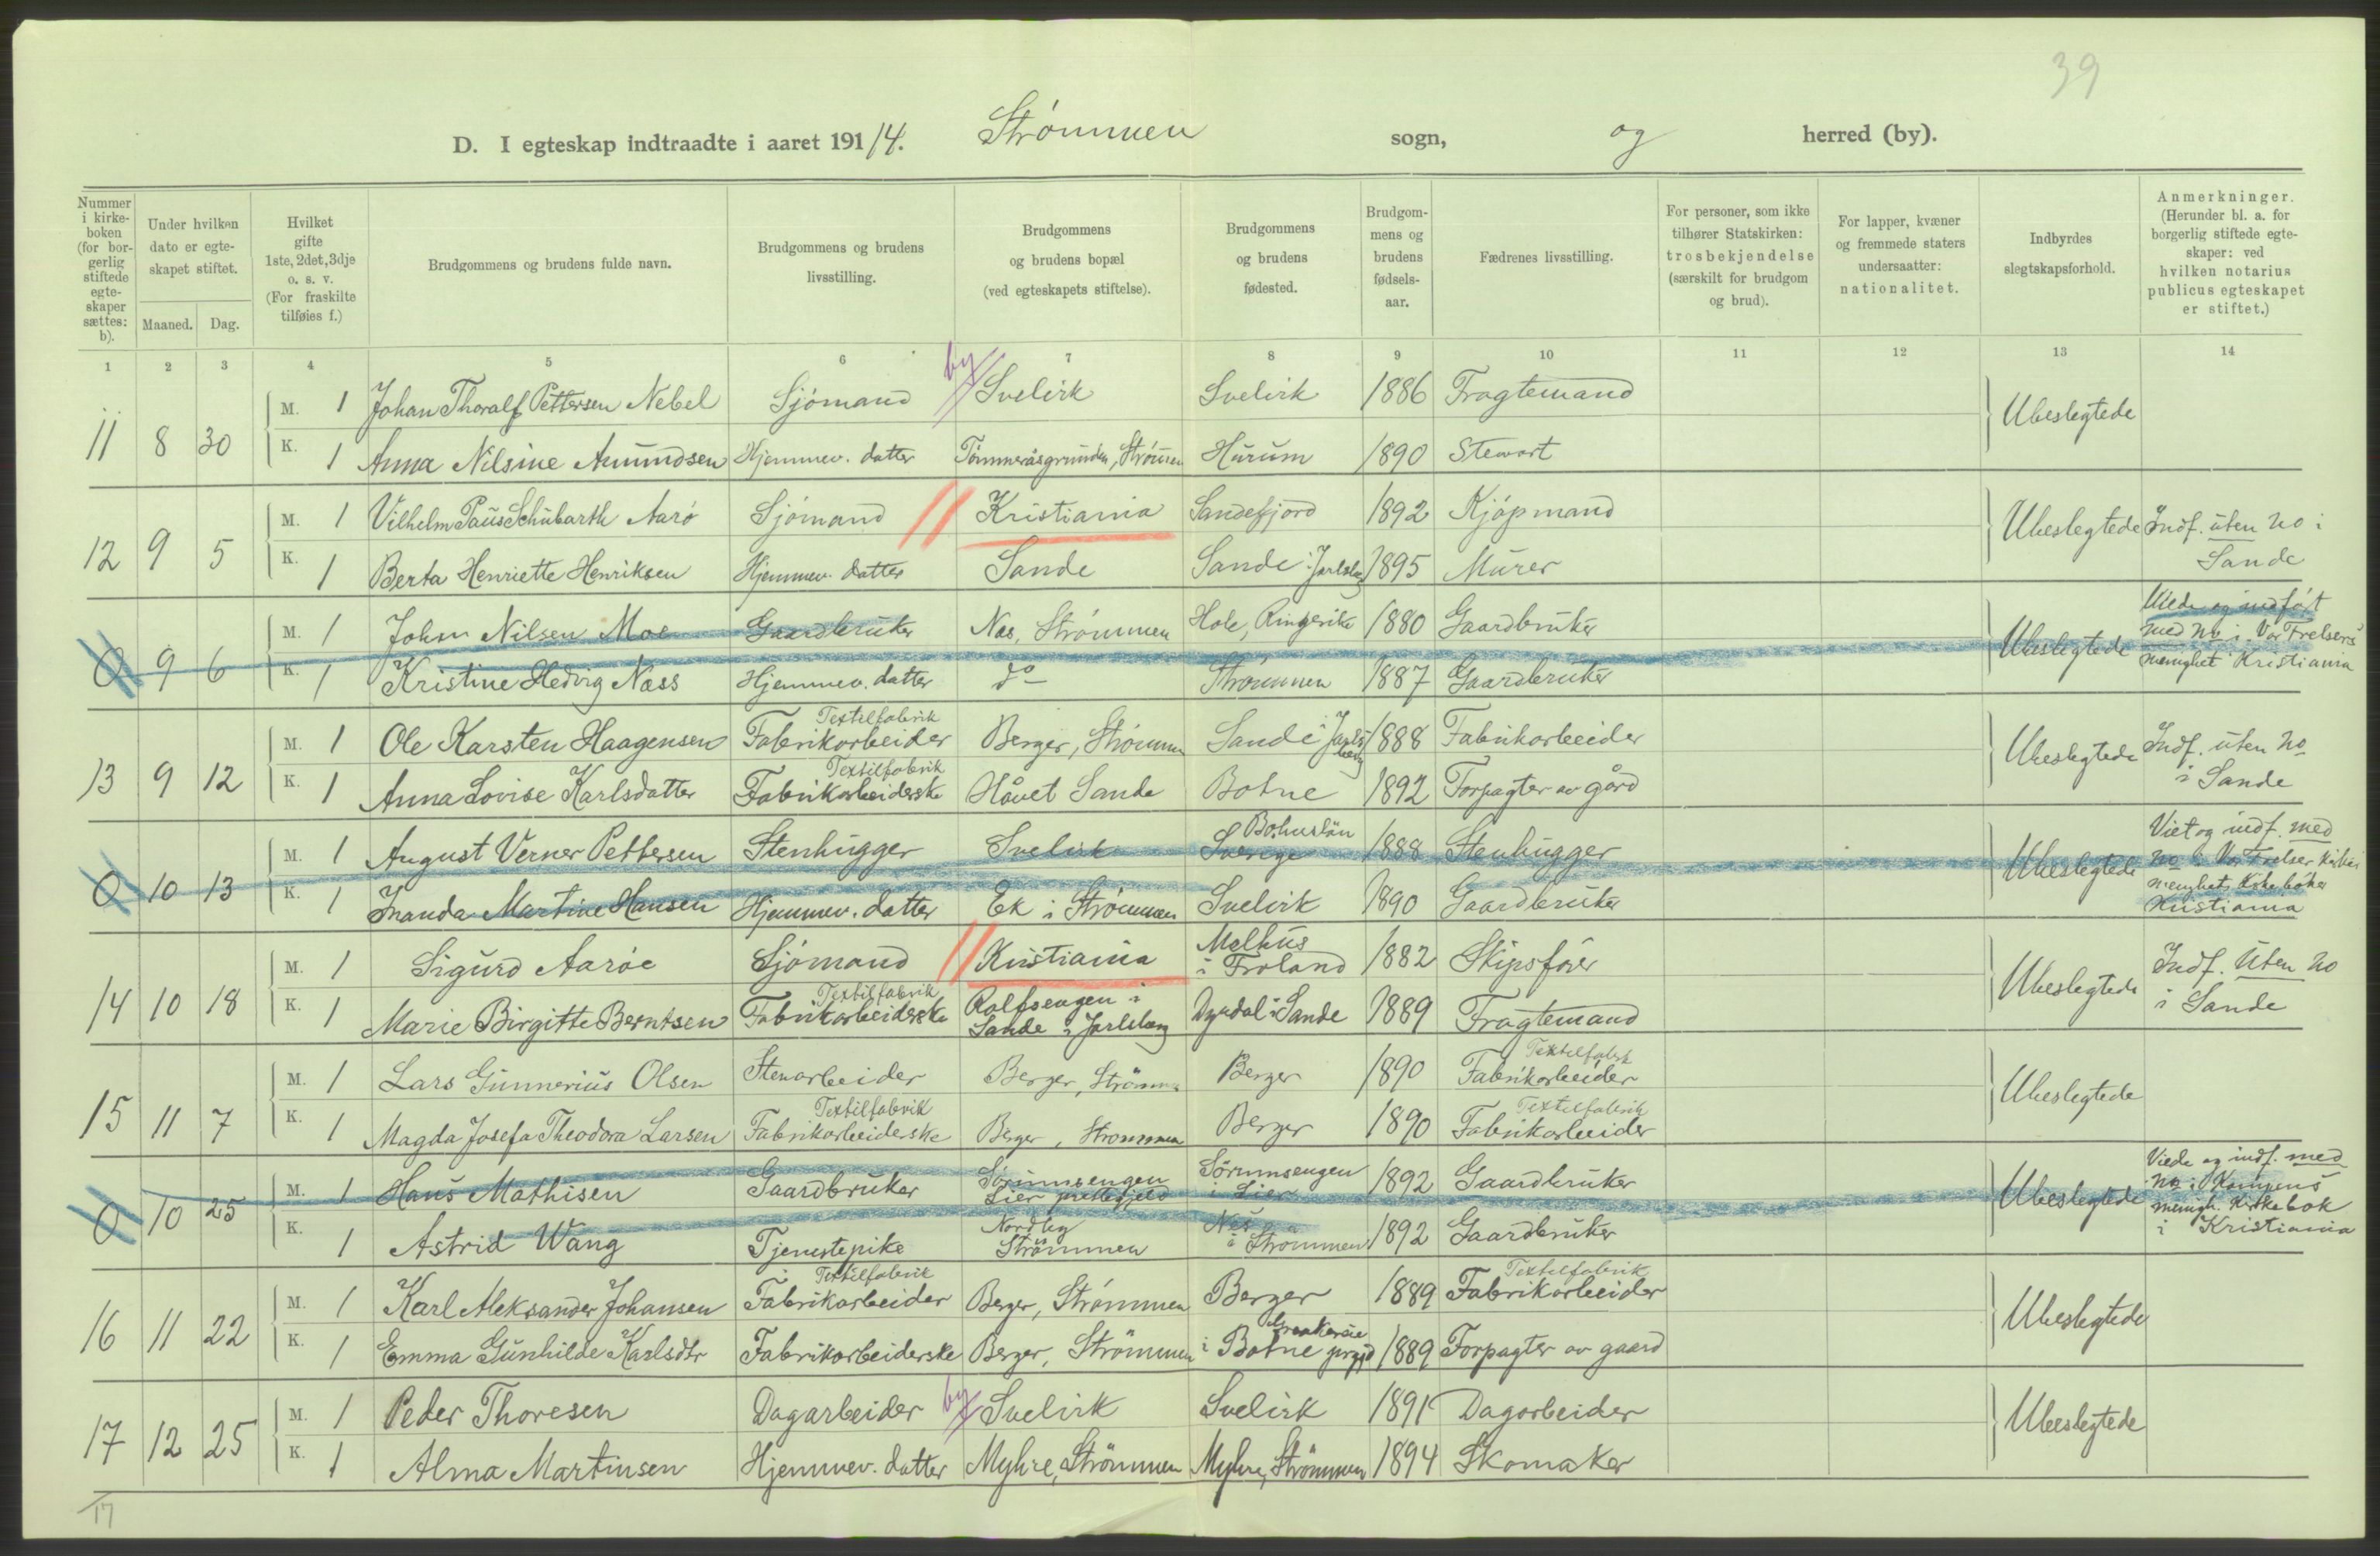 39
D. I egteskap indtraadte i aaret 1914. Strømmen sogn, og herred (by).
Nummer i kirkeboken (for borgerlig stiftede egteskaper sættes: b).
Under hvilken dato er egteskapet stiftet.
Maaned. Dag.
Hvilket gifte 1ste, 2det, 3dje o. s. v. (For fraskilte tilføies f.)
Brudgommens og brudens fulde navn.
Brudgommens og brudens livsstilling.
Brudgommens og brudens bopæl (ved egteskapets stiftelse).
Brudgommens og brudens fødested.
Brudgommens og brudens fødselsaar.
Fædrenes livsstilling.
For personer, som ikke tilhører Statskirken: trosbekjendelse (særskilt for brudgom og brud).
For lapper, kvæner og fremmede staters undersaatter: nationalitet.
Indbyrdes slegtskapsforhold.
Anmerkninger. (Herunder bl. a. for borgerlig stiftede egteskaper: ved hvilken notarius publicus egteskapet er stiftet.)
1 2 3 4 5 6 7 8 9 10 11 12 13 14
11 8 30 M. 1 Johan Thoralf Pettersen Nebel Sjømand by Svelvik Svelvik 1886 Fragtemand Ubeslegtede
K. 1 Anna Nilsine Amundsen Hjemmev. datter Tømmeråsgrunden, Strømmen Hurum 1890 Stewart
12 9 5 M. 1 Vilhelm Paus Schubarth Aarø Sjømand Kristiania Sandefjord 1892 Kjøpmand Ubeslegtede Indf. uten no i Sande
K. 1 Berta Henriette Henriksen Hjemmev. datter Sande Sande i Jarlsberg 1895 Murer
0 9 6 M. 1 Johan Nilsen Moe Gaardbruker Næs, Strømmen Hole, Ringerike 1880 Gaardbruker Ubeslegtede Viede og indført med no i Vor Frelsers menighet i Kristiania
K. 1 Kristine Hedvig Næss Hjemmev. datter do Strømmen 1887 Gaardbruker
13 9 12 M. 1 Ole Karsten Haagensen Textilfabrik Fabrikarbeider Berger, Strømmen Sande i Jarlsberg 1888 Fabrikarbeider Ubeslegtede Indf. uten no i Sande
K. 1 Anna Lovise Karlsdatter Textilfabrik Fabrikarbeiderske Håvet Sande Botne 1892 Forpagter av gård
0 10 13 M. 1 August Verner Pettersen Stenhugger Svelvik Bohuslän Sverige 1888 Stenhugger Ubeslegtede Viet og indf. med no i Vor Frelser Kirkes menighets Kirkebøker Kristiania
K. 1 Inanda Martine Hansen Hjemmev. datter Ek i Strømmen Svelvik 1890 Gaardbruker
14 10 18 M. 1 Sigurd Aarøe Sjømand Kristiania i Froland 1882 Skipsfører Ubeslegtede Indf. uten no i Sande
K. 1 Marie Birgitte Berntsen Textilfabrik Fabrikarbeiderske Rolfsengen i Sande i Jarlsberg Dyrdal i Sande 1889 Fragtemand
15 11 7 M. 1 Lars Gunnerius Olsen Stenarbeider Berger, Strømmen Berger 1890 Textilfabrik Fabrikarbeider Ubeslegtede
K. 1 Magda Josefa Theodora Larsen Textilfabrik Fabrikarbeiderske Berger, Strømmen Berger 1890 Textilfabrik Fabrikarbeider
0 10 25 M. 1 Hans Mathisen Gaardbruker Sørumsengen Lier prestegjeld Sørumsengen i Lier 1892 Gaardbruker Ubeslegtede Viede og indf. med no i Kampens menigh. Kirkebok i Kristiania
K. 1 Astrid Wang Tjenestepike Nordby Strømmen Nes i Strømmen 1892 Gaardbruker
16 11 22 M. 1 Karl Aleksander Johansen Textilfabrik Fabrikarbeider Berger, Strømmen Berger 1889 Textilfabrik Fabrikarbeider Ubeslegtede
K. 1 Emma Gunhilde Karlsdtr Fabrikarbeiderske Berger, Strømmen i Botne prgjd 1889 Forpagter av gaard
17 12 25 M. 1 Peder Thoresen Dagarbeider by Svelvik Svelvik 1891 Dagarbeider Ubeslegtede
K. 1 Alma Martinsen Hjemmev. datter Myhre, Strømmen Myhre, Strømmen 1894 Skomaker
17